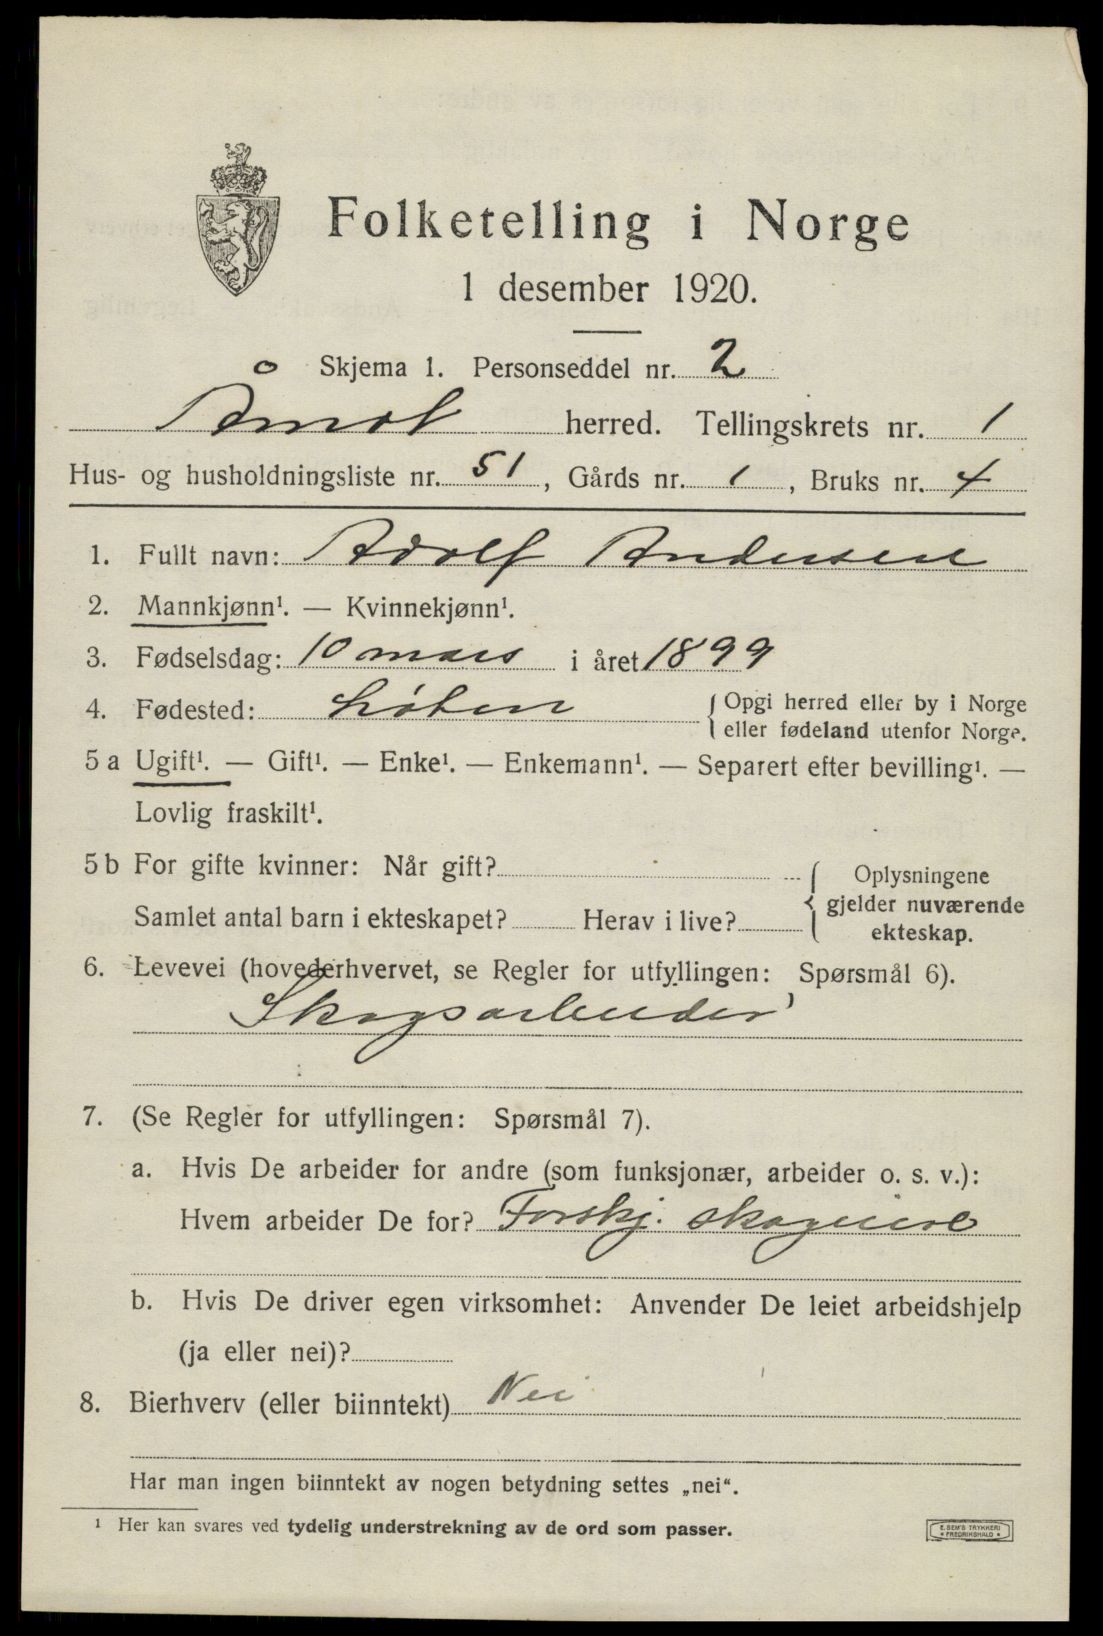 Folketelling i Norge
1 desember 1920.
Skjema 1. Personseddel nr. 2
Åmot herred. Tellingskrets nr. 1
Hus- og husholdningsliste nr. 51, Gårds nr. 1, Bruks nr. 4
1. Fullt navn: Adolf Andersen
2. Mannkjønn¹. — Kvinnekjønn¹.
3. Fødselsdag: 10 mars i året 1899
4. Fødested: Løten { Opgi herred eller by i Norge
eller fødeland utenfor Norge.
5 a Ugift¹. — Gift¹. — Enke¹. — Enkemann¹. — Separert efter bevilling¹. —
Lovlig fraskilt¹.
5 b For gifte kvinner: Når gift? { Oplysningene
gjelder nuværende
ekteskap.
Samlet antal barn i ekteskapet? Herav i live?
6. Levevei (hovederhvervet, se Regler for utfyllingen: Spørsmål 6).
Skogsarbeider
7. (Se Regler for utfyllingen: Spørsmål 7).
a. Hvis De arbeider for andre (som funksjonær, arbeider o. s. v.):
Hvem arbeider De for? Forskj. skogeiere
b. Hvis De driver egen virksomhet: Anvender De leiet arbeidshjelp
(ja eller nei)?
8. Bierhverv (eller biinntekt) Nei
Har man ingen biinntekt av nogen betydning settes „nei“.
¹ Her kan svares ved tydelig understrekning av de ord som passer.
E. SEM'S TRYKKERI
• FREDRIKSHALD •